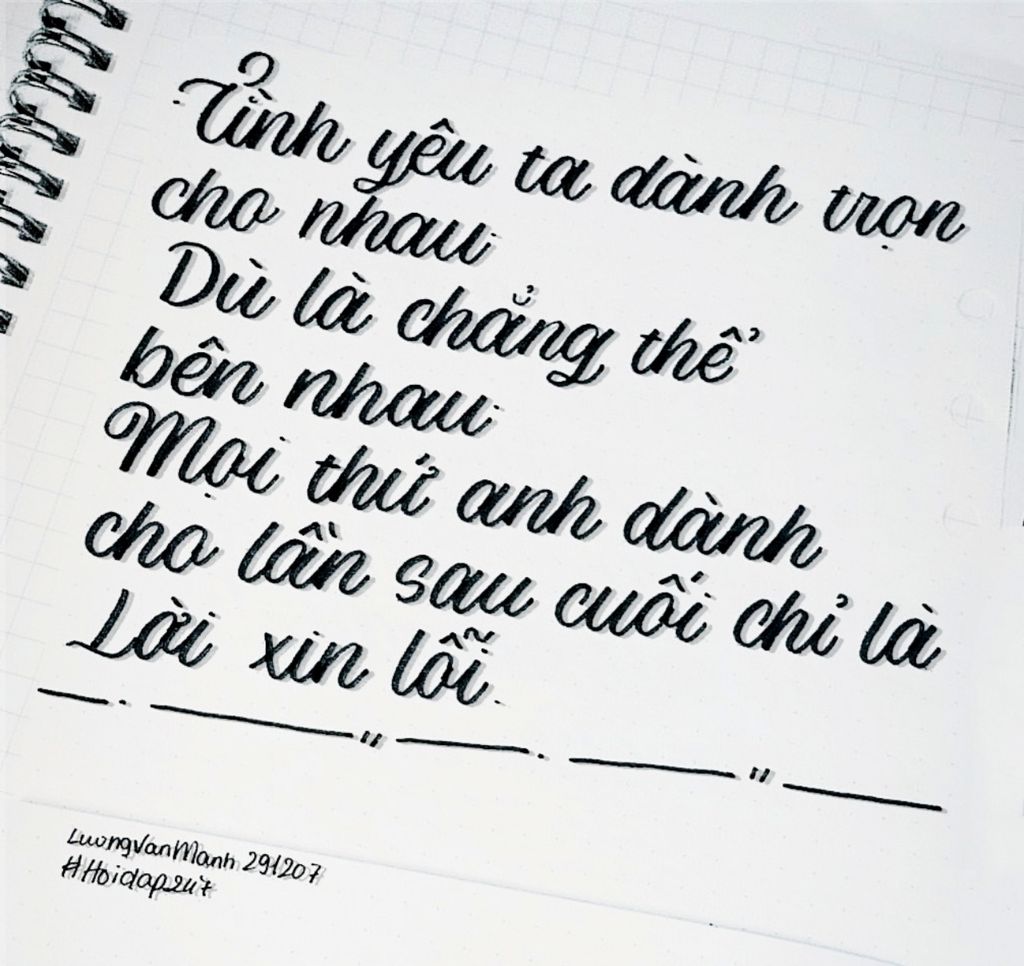 Tình yêu ta dành trọn
cho nhau
Dù là chẳng thể
bên nhau
Mọi thứ anh dành
cho lần sau cuối chỉ là
Lời xin lỗi
LuongVanManh 291207
#Hoidap247